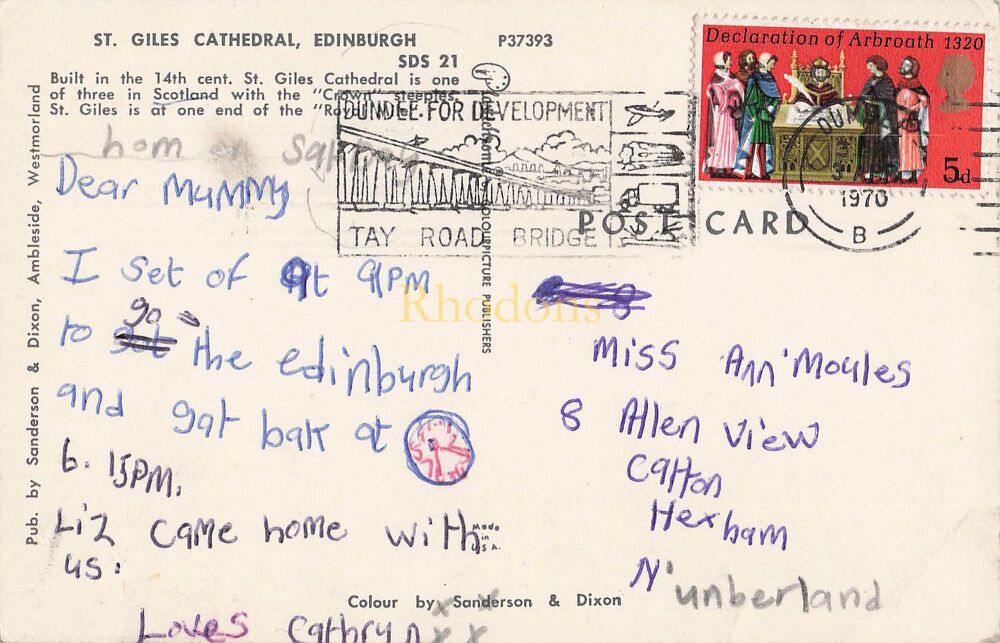 ST. GILES CATHEDRAL, EDINBURGH P37393
SDS 21
Built in the 14th cent. St. Giles Cathedral is one
of three in Scotland with the "Crown" steeples.
St. Giles is at one end of the
hom on
Dear Mummy
I set of At 9PM
to go the edinburgh
and gat bak at
6. 15PM.
Liz came home with
us.
Loves Cathryn x x x x
Pub. by Sanderson & Dixon, Ambleside, Westmorland
COLOURPICTURE PUBLISHERS
Made
in
U.S.A.
Colour by Sanderson & Dixon
POST CARD
DUNDEE FOR DEVELOPMENT
TAY ROAD BRIDGE
1970
B
Declaration of Arbroath 1320
5d
Miss Ann Moules
8 Allen View
Catton
Hexham
N'unberland
Rhodons